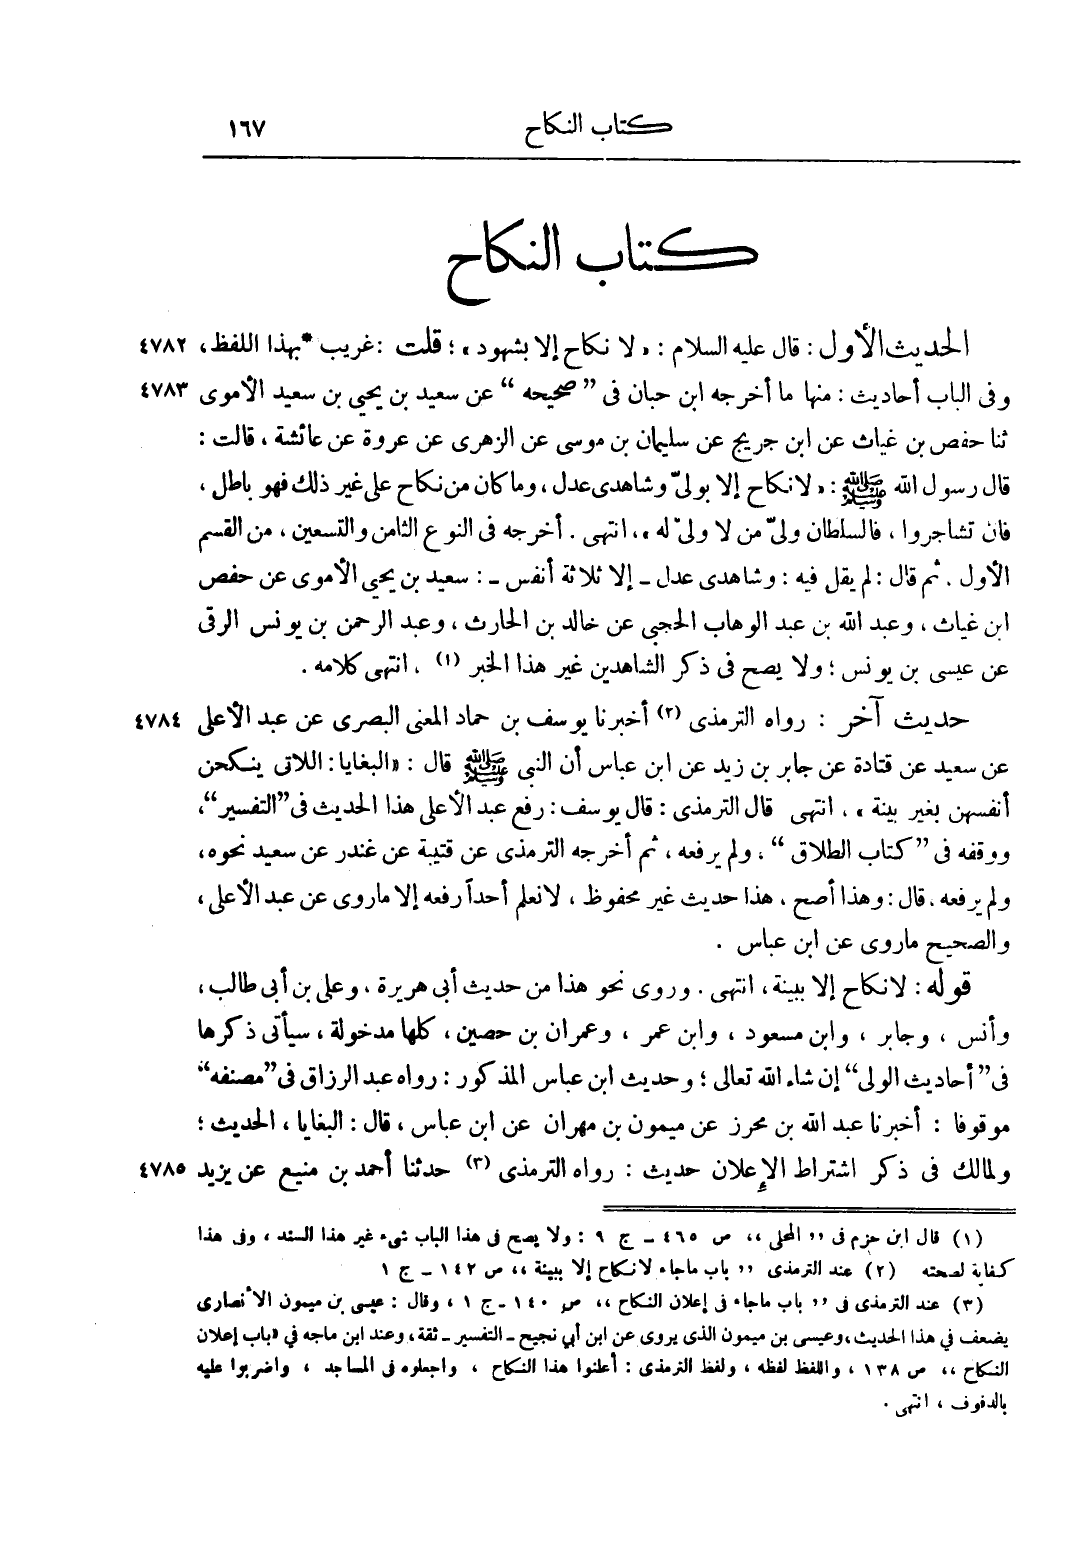 كتاب النكاح ١٦٧
كتاب النكاح
الحديث الأول : قال عليه السلام : « لا نكاح إلا بشهود » ؛ قلت : غريب * بهذا اللفظ ، ٤٧٨٢
وفى الباب أحاديث : منها ما أخرجه ابن حبان فى ” صحيحه “ عن سعيد بن يحيى بن سعيد الأموى ٤٧٨٣
ثنا حفص بن غياث عن ابن جريج عن سليمان بن موسى عن الزهرى عن عروة عن عائشة ، قالت :
قال رسول الله ﷺ : « لا نكاح إلا بولىّ وشاهدى عدل ، وما كان من نكاح على غير ذلك فهو باطل ،
فان تشاجروا ، فالسلطان ولىّ من لا ولىّ له » ، انتهى . أخرجه فى النوع الثامن والتسعين ، من القسم
الأول . ثم قال : لم يقل فيه : وشاهدى عدل ـ إلا ثلاثة أنفس ـ : سعيد بن يحيى الأموى عن حفص
ابن غياث ، وعبد الله بن عبد الوهاب الحجبى عن خالد بن الحارث ، وعبد الرحمن بن يونس الرقى
عن عيسى بن يونس ؛ ولا يصح فى ذكر الشاهدين غير هذا الخبر (١) ، انتهى كلامه .
حديث آخر : رواه الترمذى (٢) أخبرنا يوسف بن حماد المعنى البصرى عن عبد الأعلى ٤٧٨٤
عن سعيد عن قتادة عن جابر بن زيد عن ابن عباس أن النبى ﷺ قال : « البغايا : اللاتى ينكحن
أنفسهن بغير بينة » ، انتهى قال الترمذى : قال يوسف : رفع عبد الأعلى هذا الحديث فى ”التفسير“ ،
ووقفه فى ” كتاب الطلاق “ ، ولم يرفعه ، ثم أخرجه الترمذى عن قتيبة عن غندر عن سعيد نحوه ،
ولم يرفعه . قال : وهذا أصح ، هذا حديث غير محفوظ ، لانعلم أحداً رفعه إلا ماروى عن عبد الأعلى ،
والصحيح ماروى عن ابن عباس .
قوله : لا نكاح إلا ببينة ، انتهى . وروى نحو هذا من حديث أبى هريرة ، وعلى بن أبى طالب ،
وأنس ، وجابر ، وابن مسعود ، وابن عمر ، وعمران بن حصين ، كلها مدخولة ، سيأتى ذكرها
فى ” أحاديث الولى “ إن شاء الله تعالى ؛ وحديث ابن عباس المذكور : رواه عبد الرزاق فى ” مصنفه “
موقوفا : أخبرنا عبد الله بن محرز عن ميمون بن مهران عن ابن عباس ، قال : البغايا ، الحديث ؛
ولمالك فى ذكر اشتراط الإعلان حديث : رواه الترمذى (٣) حدثنا أحمد بن منيع عن يزيد ٤٧٨٥
(١) قال ابن حزم فى ,, المحلى ،، ص ٤٦٥ ـ ج ٩ : ولا يصح فى هذا الباب شىء غير هذا السند ، وفى هذا
كفاية لصحته (٢) عند الترمذى ,, باب ماجاء لا نكاح إلا ببينة ،، ص ١٤٢ ـ ج ١
(٣) عند الترمذى فى ,, باب ماجاء فى إعلان النكاح ،، ص ١٤٠ ـ ج ١ ، وقال : عيسى بن ميمون الأنصارى
يضعف في هذا الحديث ، وعيسى بن ميمون الذى يروى عن ابن أبي نجيح ـ التفسير ـ ثقة ، وعند ابن ماجه في «باب إعلان
النكاح ،، ص ١٣٨ ، واللفظ لفظه ، ولفظ الترمذى : أعلنوا هذا النكاح ، واجعلوه فى المساجد ، واضربوا عليه
بالدفوف ، انتهى .